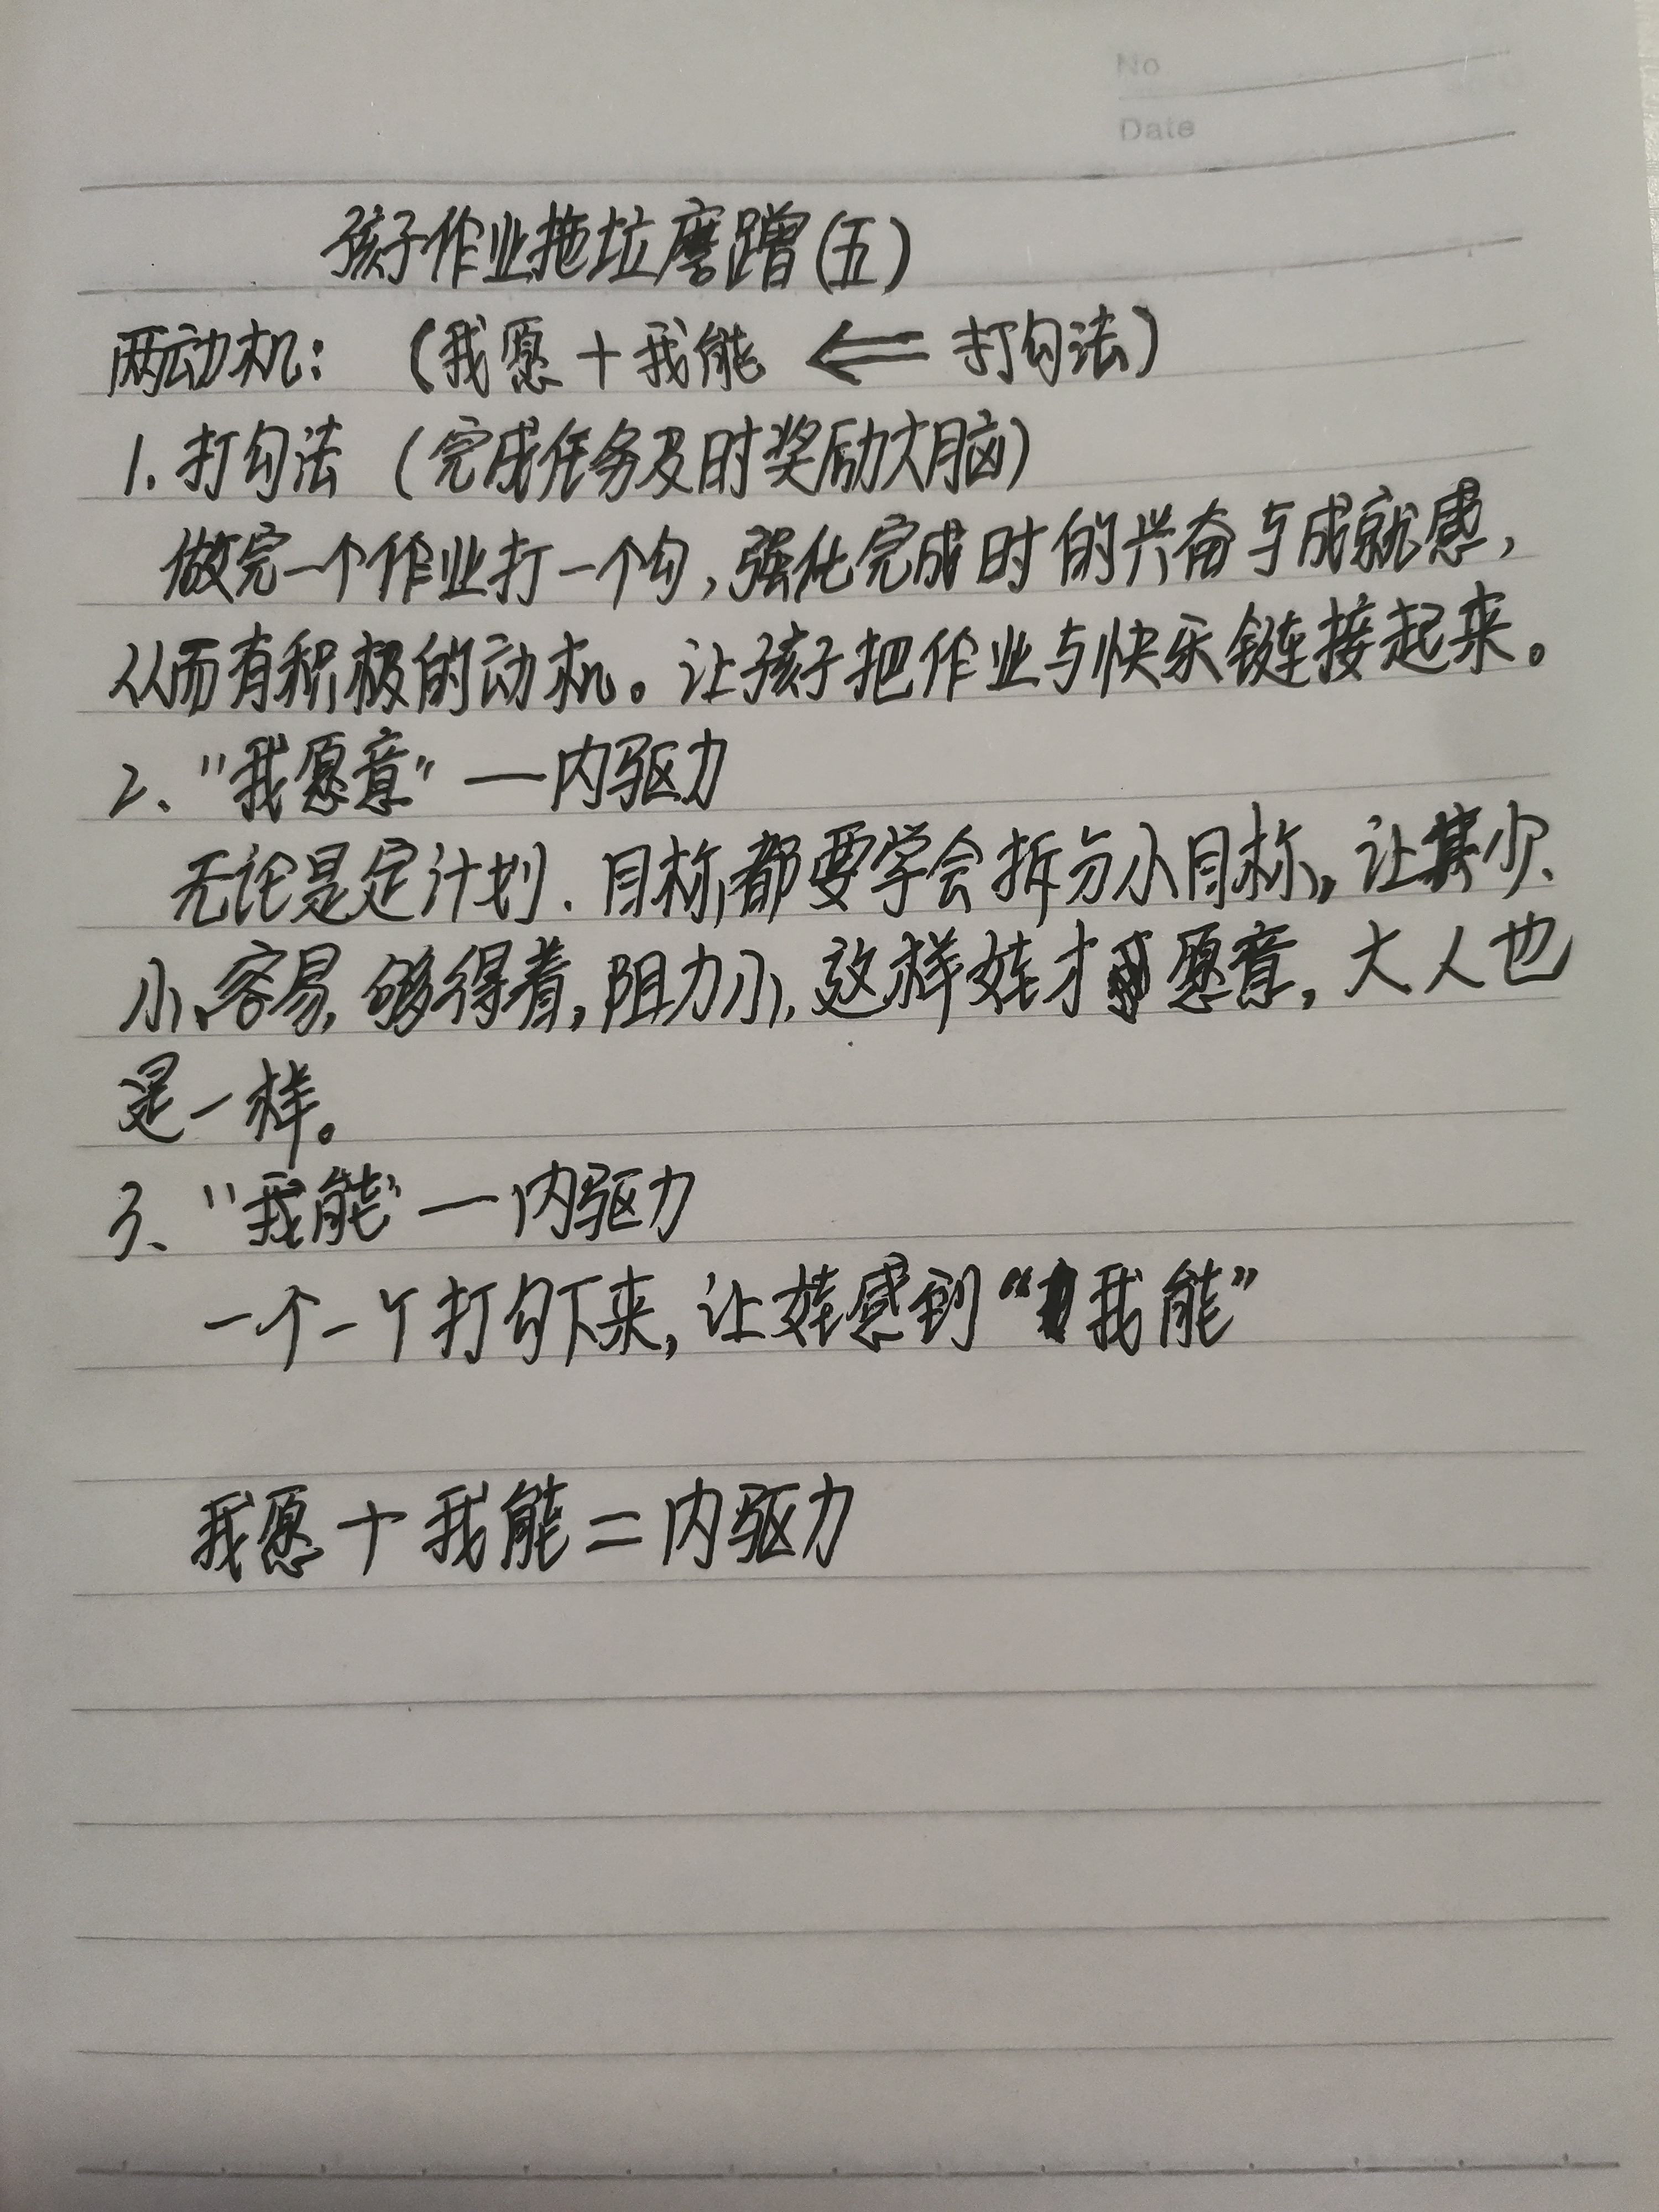 No
Date
孩子作业拖垃磨蹭(五)
两动机：（我愿＋我能 ⇐ 打勾法）
1. 打勾法（完成任务及时奖励大脑）
做完一个作业打一个勾，强化完成时的兴奋与成就感，
从而有积极的动机。让孩子把作业与快乐链接起来。
2、“我愿意”—内驱力
无论是定计划．目标，都要学会拆分小目标，让其少、
小、容易，够得着，阻力小，这样娃才愿意，大人也
是一样。
3、“我能”—内驱力
一个一个打勾下来，让娃感到“我能”
我愿＋我能＝内驱力